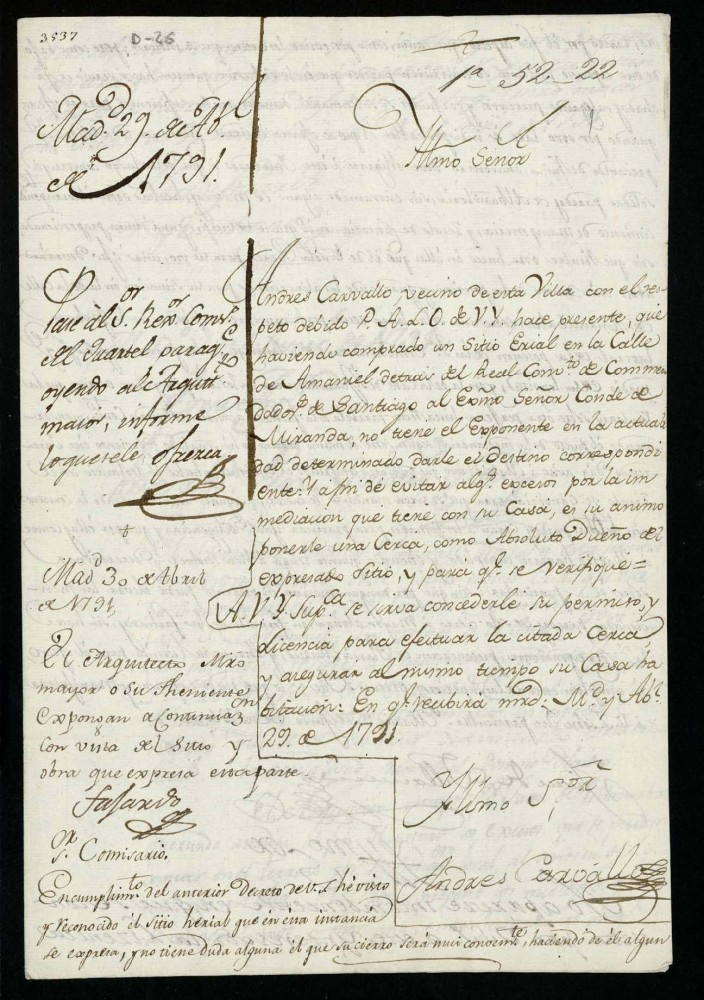 3537
D-26
1ª 52-22
Mad.d 29. de Abl
de 1791.
Yllmo Señor
Pase àl S.or Rexor. Comis.o
del Quartel para q.e
oyendo al Arquit.to
maior, informe
lo que se le ofrezca
Andres Carvallo vecino de esta Villa con el res-
peto debido P. A. L. O. de V. Y. hace presente, que
haviendo comprado un Sitio Erial en la Calle
de Amaniel detras del Real Com.to de Commen
dador.s de Santiago al Exmo Señor Conde de
Miranda, no tiene el Exponente en la actuali
dad determinado darle el Destino correspondi
ente: Y a fin de evitar alg.s excesos por la in
mediacion que tiene con su Casa, es su animo
ponerle una Cerca, como Absoluto Dueño del
expresado Sitio, y para q.e se verifique=
A. V. Y. Sup.ca se sirva concederle su permiso, y
licencia para efectuar la citada Cerca
y asegurar al mismo tiempo su Casa ha
bitacion: En q.e recibirà mrd: M.d y Ab.l
29. de 1791.
Yllmo S.or
Andres Carvallo
+
Mad.d 30 de Abril
de 1791
El Arquitecto Mro
mayor o su Theniente
expongan a Continuaz.on
con vista del Sitio y
obra que expresa esta parte.
Fajardo
S.r Comisario.
En cumplim.to del anterior Decreto de V.S. hé visto
y reconocido el sitio herial que en esta instancia
se expresa, y no tiene duda alguna él que su cierro será mui convente.te, haciendo de él algun